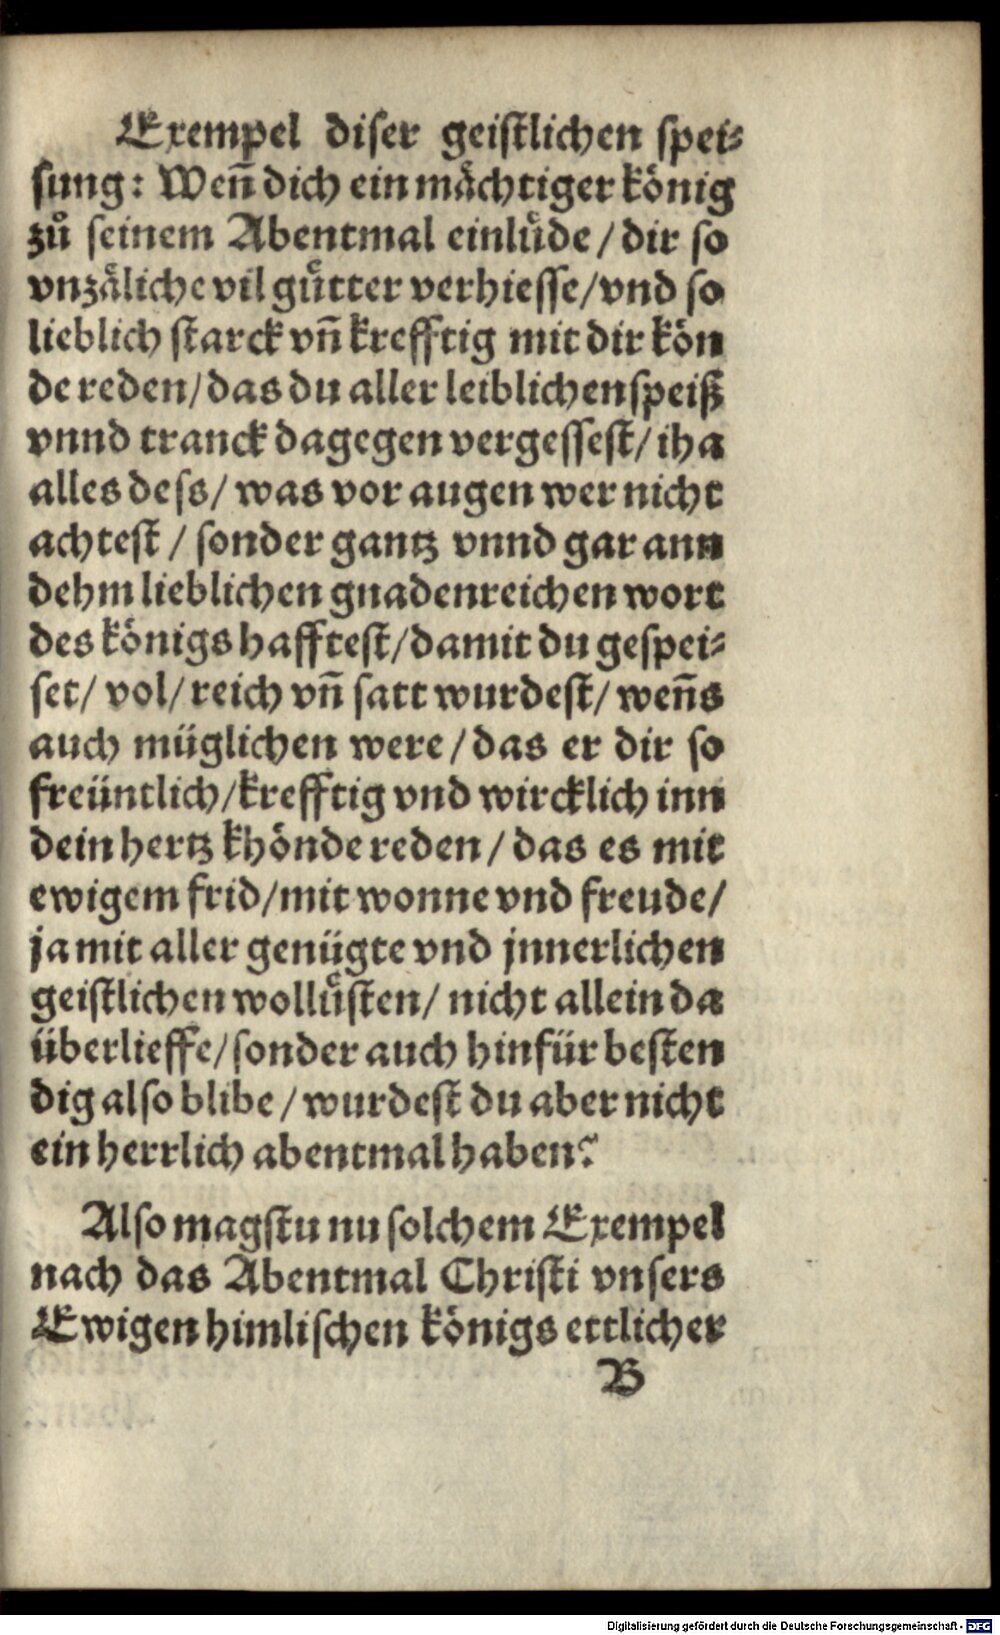 Exempel diser geistlichen spei⸗
sung: Weñ dich ein mächtiger könig
zů seinem Abentmal einlůde / dir so
vnzäliche vil gůtter verhiesse / vnd so
lieblich starck vñ krefftig mit dir kön
de reden / das du aller leiblichen speiß
vnnd tranck dagegen vergessest / iha
alles dess / was vor augen wer nicht
achtest / sonder gantz vnnd gar ann
dehm lieblichen gnadenreichen wort
des königs hafftest / damit du gespei⸗
set / vol / reich vñ satt wurdest / weñs
auch müglichen were / das er dir so
freüntlich / krefftig vnd wircklich inn
dein hertz khönde reden / das es mit
ewigem frid / mit wonne vnd freude /
ja mit aller genügte vnd jnnerlichen
geistlichen wollůsten / nicht allein da
überlieffe / sonder auch hinfür besten
dig also blibe / wurdest du aber nicht
ein herrlich abentmal haben?
Also magstu nu solchem Exempel
nach das Abentmal Christi vnsers
Ewigen himlischen königs ettlicher
B
Digitalisierung gefördert durch die Deutsche Forschungsgemeinschaft - DFG